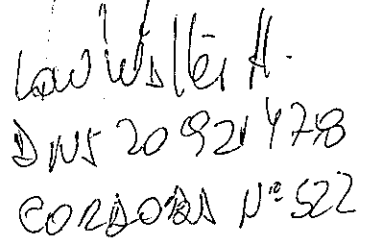 Walter H.
DNI 20921478
CORDOBA Nº 522